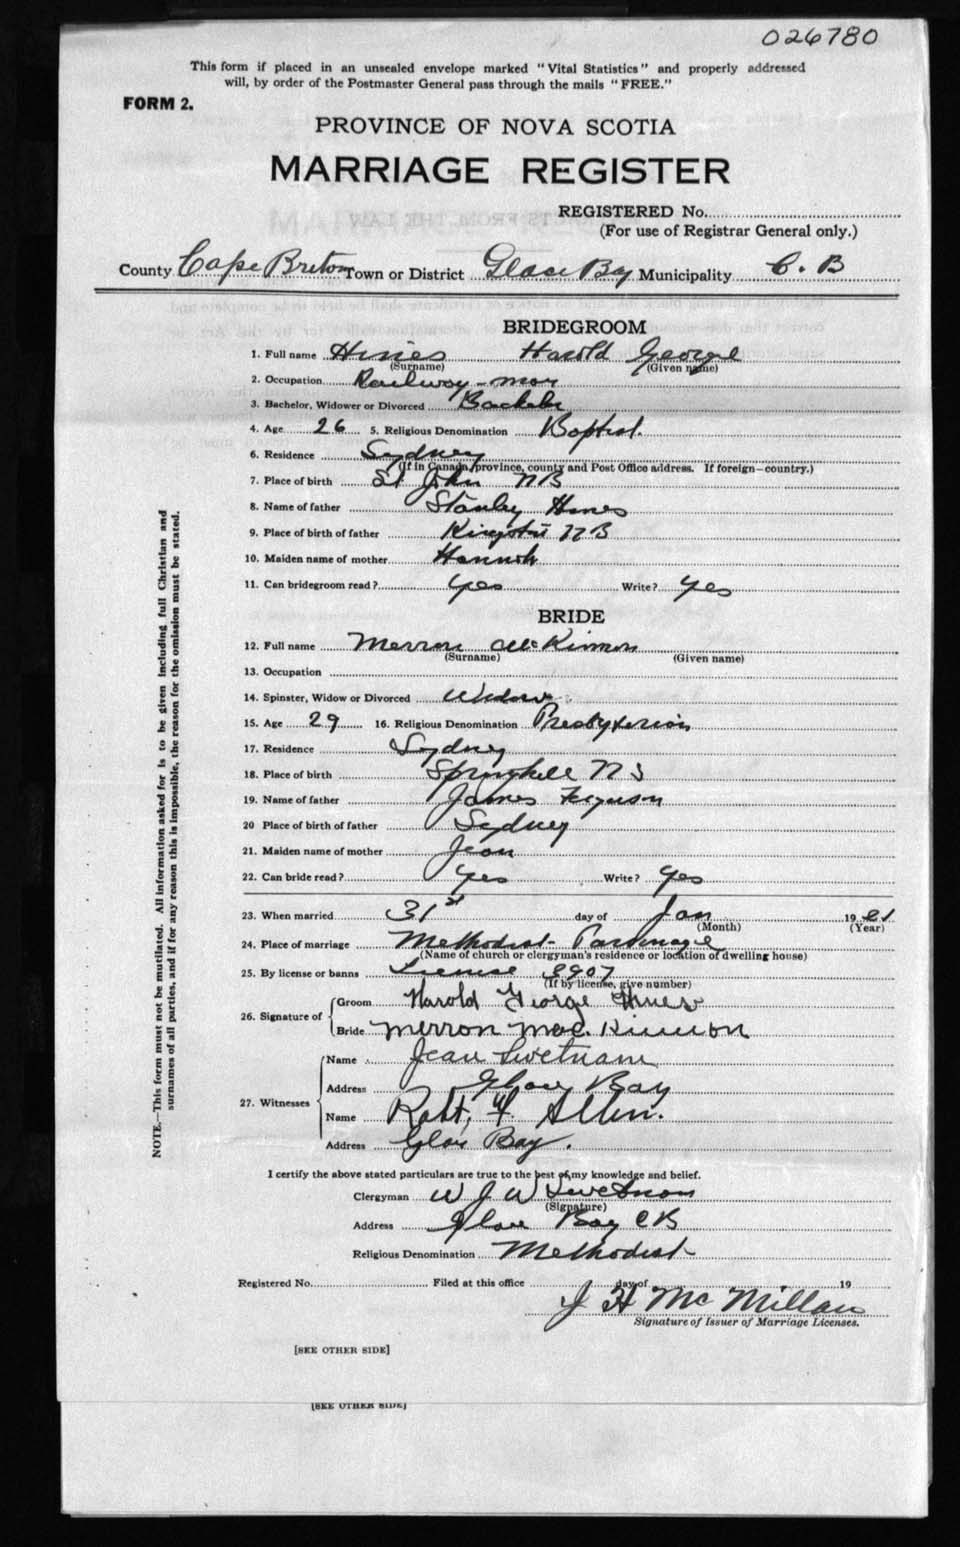 026780
This form if placed in an unsealed envelope marked "Vital Statistics" and properly addressed
will, by order of the Postmaster General pass through the mails "FREE."
FORM 2.
PROVINCE OF NOVA SCOTIA
MARRIAGE REGISTER
REGISTERED No.
(For use of Registrar General only.)
County Cape Breton Town or District Glace Bay Municipality C. B
BRIDEGROOM
1. Full name Hines Harold George
(Surname) (Given name)
2. Occupation Railway-man
3. Bachelor, Widower or Divorced Bachelor
4. Age 26 5. Religious Denomination Baptist.
6. Residence Sydney
(If in Canada, province, county and Post Office address. If foreign—country.)
7. Place of birth St John NB
8. Name of father Stanley Hines
9. Place of birth of father NB
10. Maiden name of mother Hannah
11. Can bridegroom read? yes Write? yes
BRIDE
12. Full name Merron McKinnon
(Surname) (Given name)
13. Occupation
14. Spinster, Widow or Divorced Widow
15. Age 29 16. Religious Denomination Presbyterian
17. Residence Sydney
18. Place of birth Springhill N S
19. Name of father James Ferguson
20 Place of birth of father Sydney
21. Maiden name of mother Jean
22. Can bride read? yes Write? yes
23. When married 31st day of Jan 1921
(Month) (Year)
24. Place of marriage Methodist Parsonage
(Name of church or clergyman's residence or location of dwelling house)
25. By license or banns License 8907
(If by license, give number)
26. Signature of Groom Harold George Hines
Bride Merron Mac. Kinnon
27. Witnesses
Name Jean Swetnam
Address Glace Bay
Name Robt. F. Allen.
Address Glace Bay.
I certify the above stated particulars are true to the best of my knowledge and belief.
Clergyman W J W Swetnam
(Signature)
Address Glace Bay CB
Religious Denomination Methodist
Registered No. Filed at this office day of 19
J H McMillan
Signature of Issuer of Marriage Licenses.
[SEE OTHER SIDE]
[SEE OTHER SIDE]
NOTE.—This form must not be mutilated. All information asked for is to be given including full Christian and
surnames of all parties, and if for any reason this is impossible, the reason for the omission must be stated.